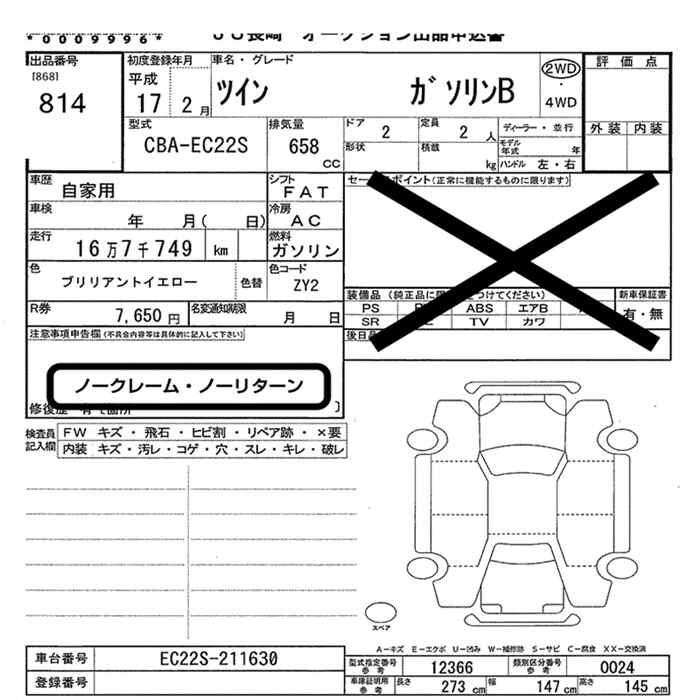 *0009996*
JU長崎 オークション出品申込書
出品番号 初度登録年月 車名・グレード
[868] 平成
814 17 2月 ツイン ガソリンB 2WD ・ 4WD
評価点
外装 内装
型式 排気量 ドア 定員 ディーラー・並行
CBA-EC22S 658 CC 2 2 人
形状 積載 kg モデル年式 年
ハンドル 左・右
車歴 自家用 シフト FAT
車検 年 月( 日) 冷房 AC
走行 16万7千749 km 燃料 ガソリン
色 ブリリアントイエロー 色替 色コード ZY2
R券 7,650円 名変通知期限 月 日
セー ポイント(正常に機能するものに限ります)
装備品 (純正品に限 つけてください) 新車保証書
PS ABS エアB 有・無
SR TV カワ
後日品
注意事項申告欄(不具合内容等は具体的に記入して下さい)
ノークレーム・ノーリターン
修復歴 有て箇所 ]
検査員記入欄 FW キズ・飛石・ヒビ割・リペア跡・×要
内装 キズ・汚レ・コゲ・穴・スレ・キレ・破レ
スペア
A－キズ E－エクボ U－凹み W－補修跡 S－サビ C－腐食 XX－交換済
車台番号 EC22S-211630
登録番号
型式指定番号 参考 12366 類別区分番号 参考 0024
車庫証明用 参考 長さ 273 cm 幅 147 cm 高さ 145 cm